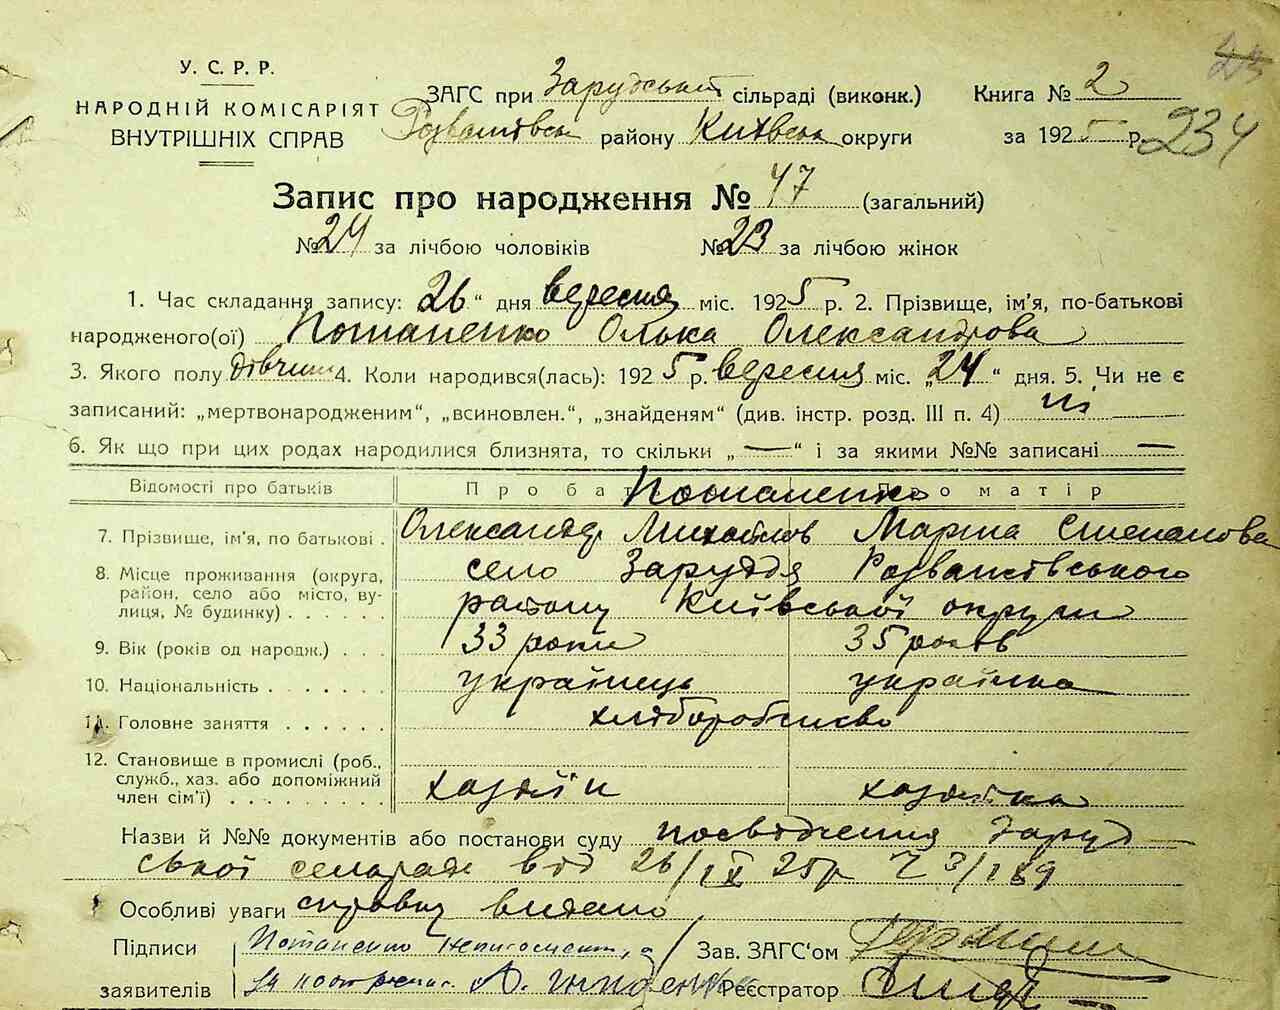 У. С. Р. Р.
НАРОДНІЙ КОМІСАРІЯТ
ВНУТРІШНІХ СПРАВ
ЗАГС при Зарудській сільраді (виконк.)
Розважівськ району Київськ округи
Книга № 2
за 1925 р.
23
234
Запис про народження № 47 (загальний)
№ 24 за лічбою чоловіків № 23 за лічбою жінок
1. Час складання запису: 26 “ дня вересня міс. 1925 р. 2. Прізвище, ім’я, по-батькові
народженого(ої) Потапенко Олька Олександрова
3. Якого полу дівчина 4. Коли народився(лась): 1925 р. вересня міс. „24“ дня. 5. Чи не є
записаний: „мертвонародженим“, „всиновлен.“, „знайденям“ (див. інстр. розд. III п. 4) ні
6. Як що при цих родах народилися близнята, то скільки „—“ і за якими №№ записані —
Відомості про батьків Про бат Потапенко Про матір
7. Прізвище, ім’я, по батькові . Олександр Михайлов Марина Степанова
8. Місце проживання (округа, село Заруддя Розважівського
район, село або місто, ву-
лиця, № будинку) . . . . . . району Київської округи
9. Вік (років од народж.) . . . 33 роки 35 років
10. Національність . . . . . . . українець українка
11. Головне заняття . . . . . . хліборобство
12. Становище в промислі (роб.,
служб., хаз. або допоміжний
член сім’ї) . . . . . . . . . хазяїн хазяйка
Назви й №№ документів або постанови суду посвідчення Заруд
ської сельради від 26/IX 25р Ч 3/189
Особливі уваги справку видано
Підписи Потапенко неписьмен,
заявителів А.
Зав. ЗАГС‘ом
Реєстратор